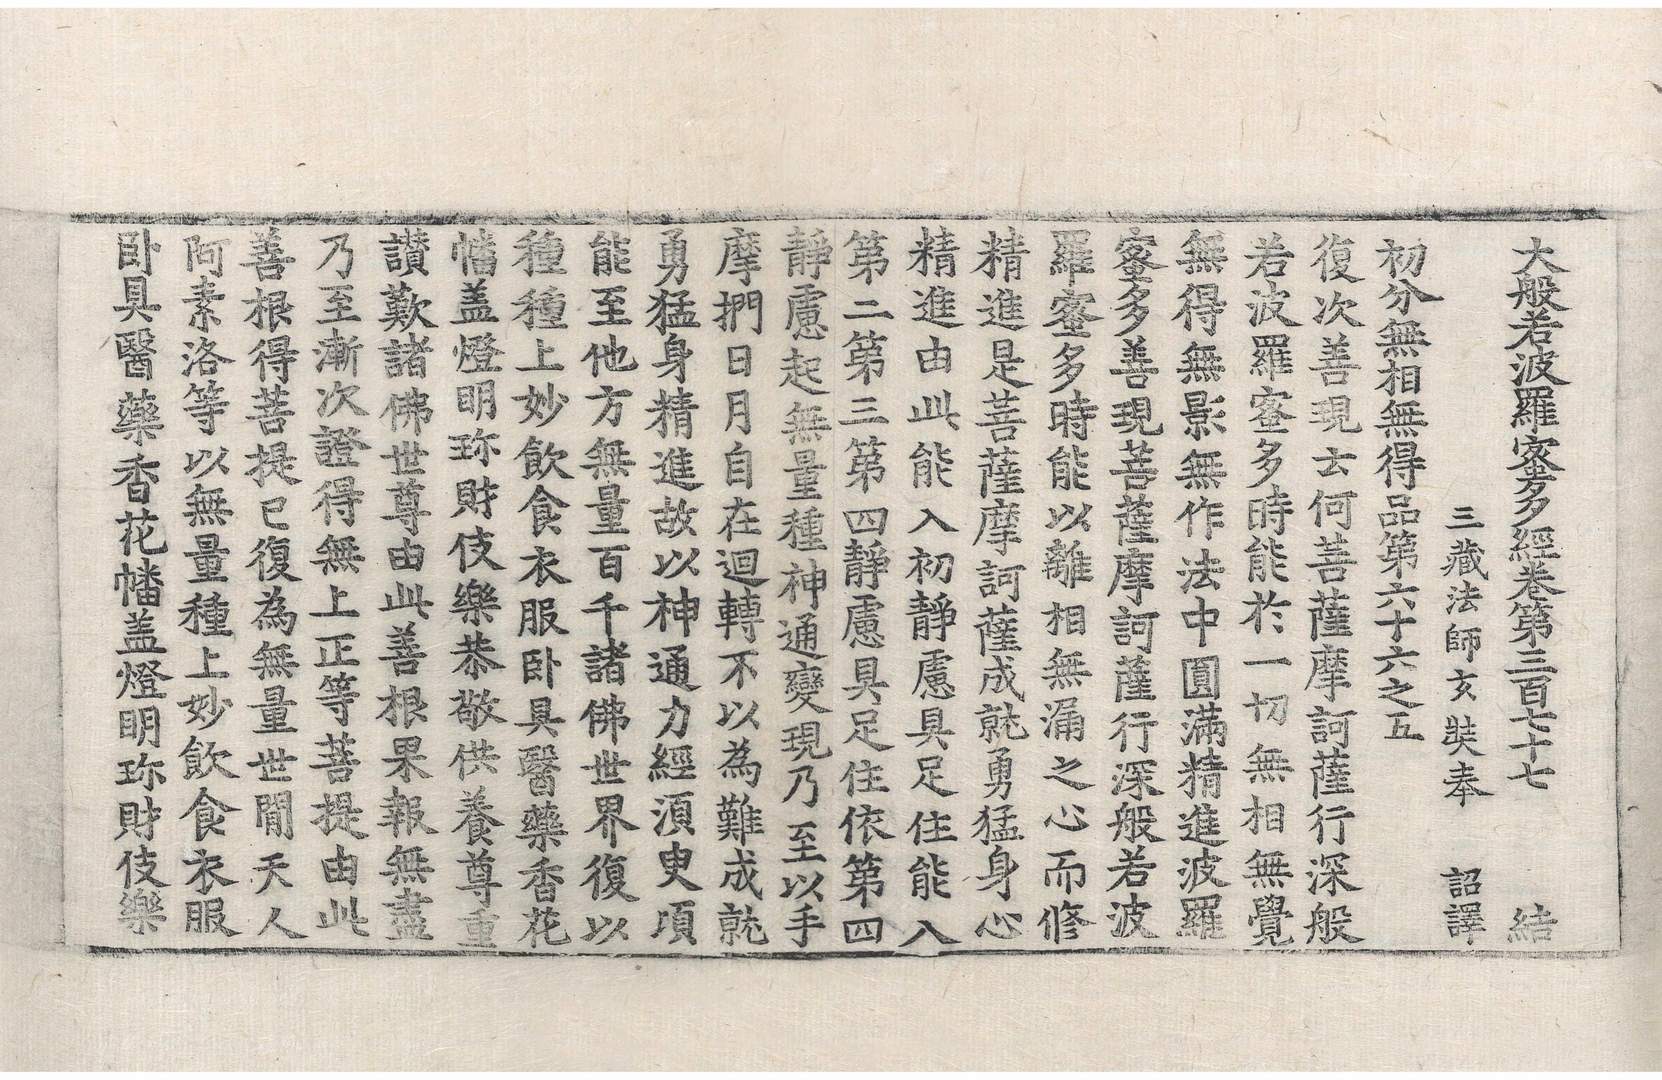 大般若波羅蜜多經卷第三百七十七　結
三藏法師玄奘奉　詔譯
初分無相無得品第六十六之五
復次善現云何菩薩摩訶薩行深般
若波羅蜜多時能於一切無相無覺
無得無影無作法中圓滿精進波羅
蜜多善現菩薩摩訶薩行深般若波
羅蜜多時能以離相無漏之心而修
精進是菩薩摩訶薩成就勇猛身心
精進由此能入初靜慮具足住能入
第二第三第四靜慮具足住依第四
靜慮起無量種神通變現乃至以手
摩捫日月自在迴轉不以為難成就
勇猛身精進故以神通力經須臾頃
能至他方無量百千諸佛世界復以
種種上妙飲食衣服臥具醫藥香花
幡盖燈明珎財伎樂恭敬供養尊重
讃歎諸佛世尊由此善根果報無盡
乃至漸次證得無上正等菩提由此
善根得菩提已復為無量世間天人
阿素洛等以無量種上妙飲食衣服
臥具醫藥香花幡盖燈明珎財伎樂